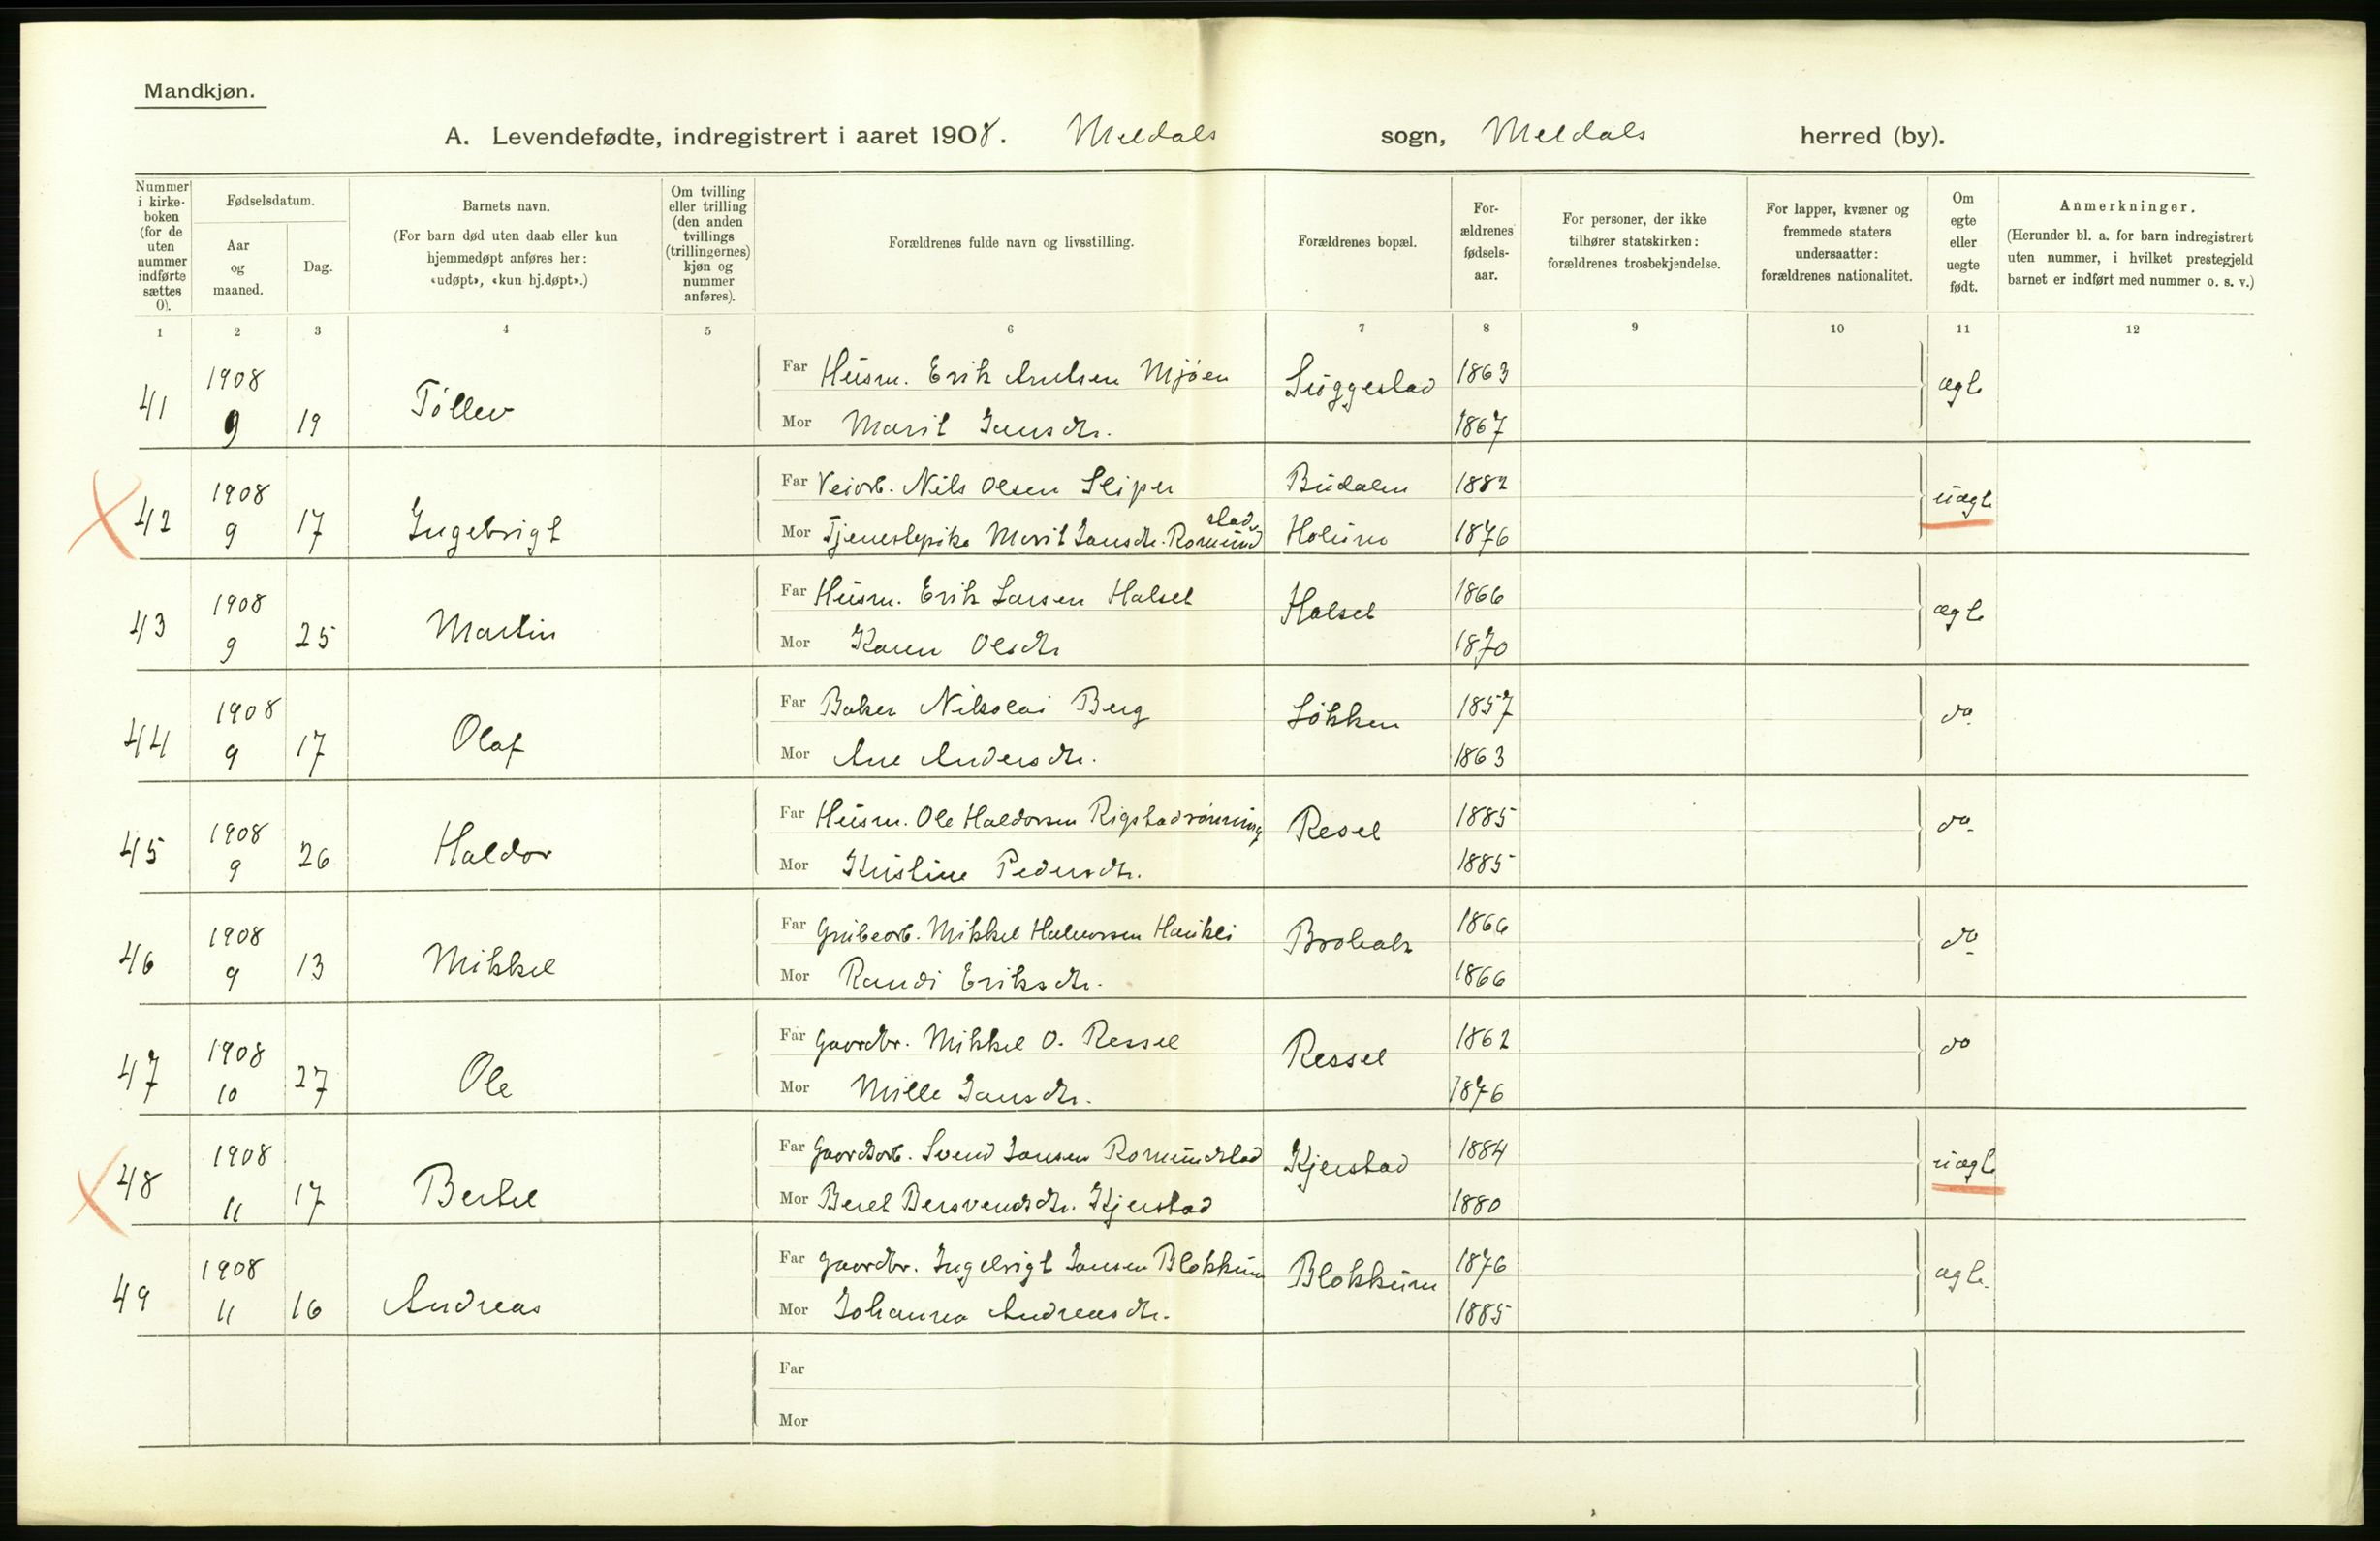 Mandkjøn.
A. Levendefødte, indregistrert i aaret 1908. Meldals sogn, Meldals herred (by).
Nummer i kirke-boken (for de uten nummer indførte sættes 0).
Fødselsdatum.
Aar og maaned.
Dag.
Barnets navn.
(For barn død uten daab eller kun hjemmedøpt anføres her: «udøpt», «kun hj.døpt».)
Om tvilling eller trilling (den anden tvillings (trillingernes) kjøn og nummer anføres).
Forældrenes fulde navn og livsstilling.
Forældrenes bopæl.
For-ældrenes fødsels-aar.
For personer, der ikke tilhører statskirken: forældrenes trosbekjendelse.
For lapper, kvæner og fremmede staters undersaatter: forældrenes nationalitet.
Om egte eller uegte født.
Anmerkninger.
(Herunder bl. a. for barn indregistrert uten nummer, i hvilket prestegjeld barnet er indført med nummer o. s. v.)
1 2 3 4 5 6 7 8 9 10 11 12
41 1908 9 19 Töllev Far Husm. Erik Mjöen 1863 ægt
Mor Marit Jansdtr. 1867
42 1908 9 17 Ingebrigt Far Veiarb. Nils Olsen Sliper Budalen 1882 uægt
Mor Tjenestepike Marit Jansdtr. Romundstad Holum 1876
43 1908 9 25 Martin Far Husm. Erik Larsen Halset Halset 1866 ægt
Mor Karen Olsdtr 1870
44 1908 9 17 Olaf Far Baker Nikolai Berg Lökken 1857 do
Mor Ane Andersdtr. 1863
45 1908 9 26 Haldor Far Husm. Ole Haldorsen Rigstadrönning Resel 1885 do
Mor Kristine Pedersdtr. 1885
46 1908 9 13 Mikkel Far Grubearb. Mikkel Halvorsen Haukli Brobak 1866 do
Mor Randi Eriksdtr. 1866
47 1908 10 27 Ole Far Gaardbr. Mikkel O. Ressel Ressel 1862 do
Mor Mille Jansdtr. 1876
48 1908 11 17 Bertel Far Gaardarb. Svend Jansen Romundstad Kjerstad 1884 uægt
Mor Beret Bersvendsdtr. Kjerstad 1880
49 1908 11 16 Andreas Far Gaardbr. Ingebrigt Jansen Blokkum Blokkum 1876 ægt.
Mor Johanna Andreasdtr. 1885
Far
Mor